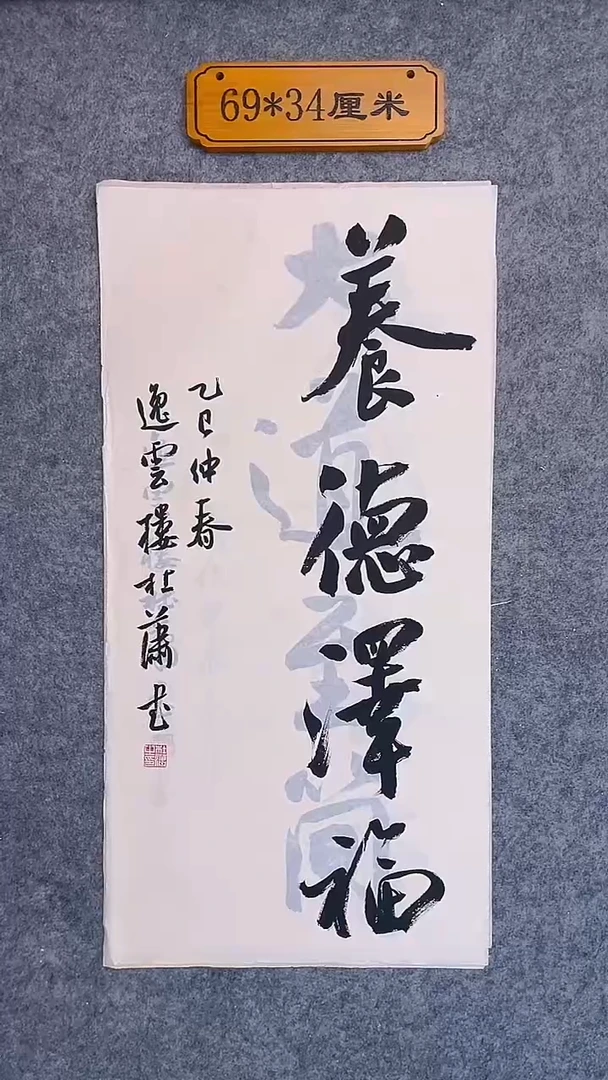 69*34厘米
養德澤福
乙巳仲春
逸雲樓杜蕭书